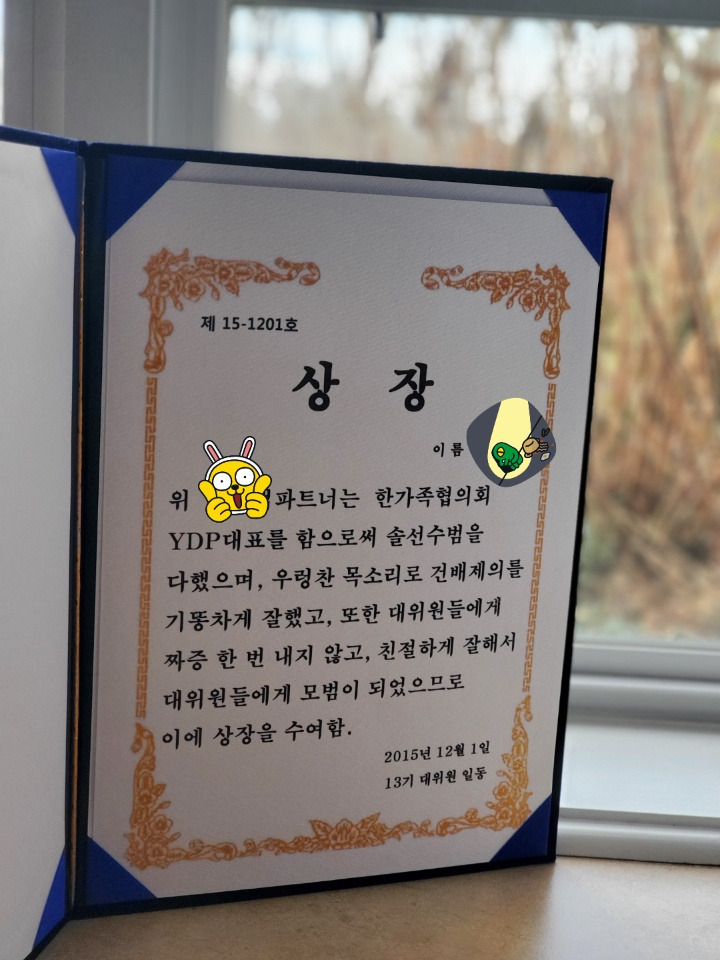 제 15-1201호
상 장
이 름
위 파트너는 한가족협의회
YDP대표를 함으로써 솔선수범을
다했으며, 우렁찬 목소리로 건배제의를
기똥차게 잘했고, 또한 대위원들에게
짜증 한 번 내지 않고, 친절하게 잘해서
대위원들에게 모범이 되었으므로
이에 상장을 수여함.
2015년 12월 1일
13기 대위원 일동